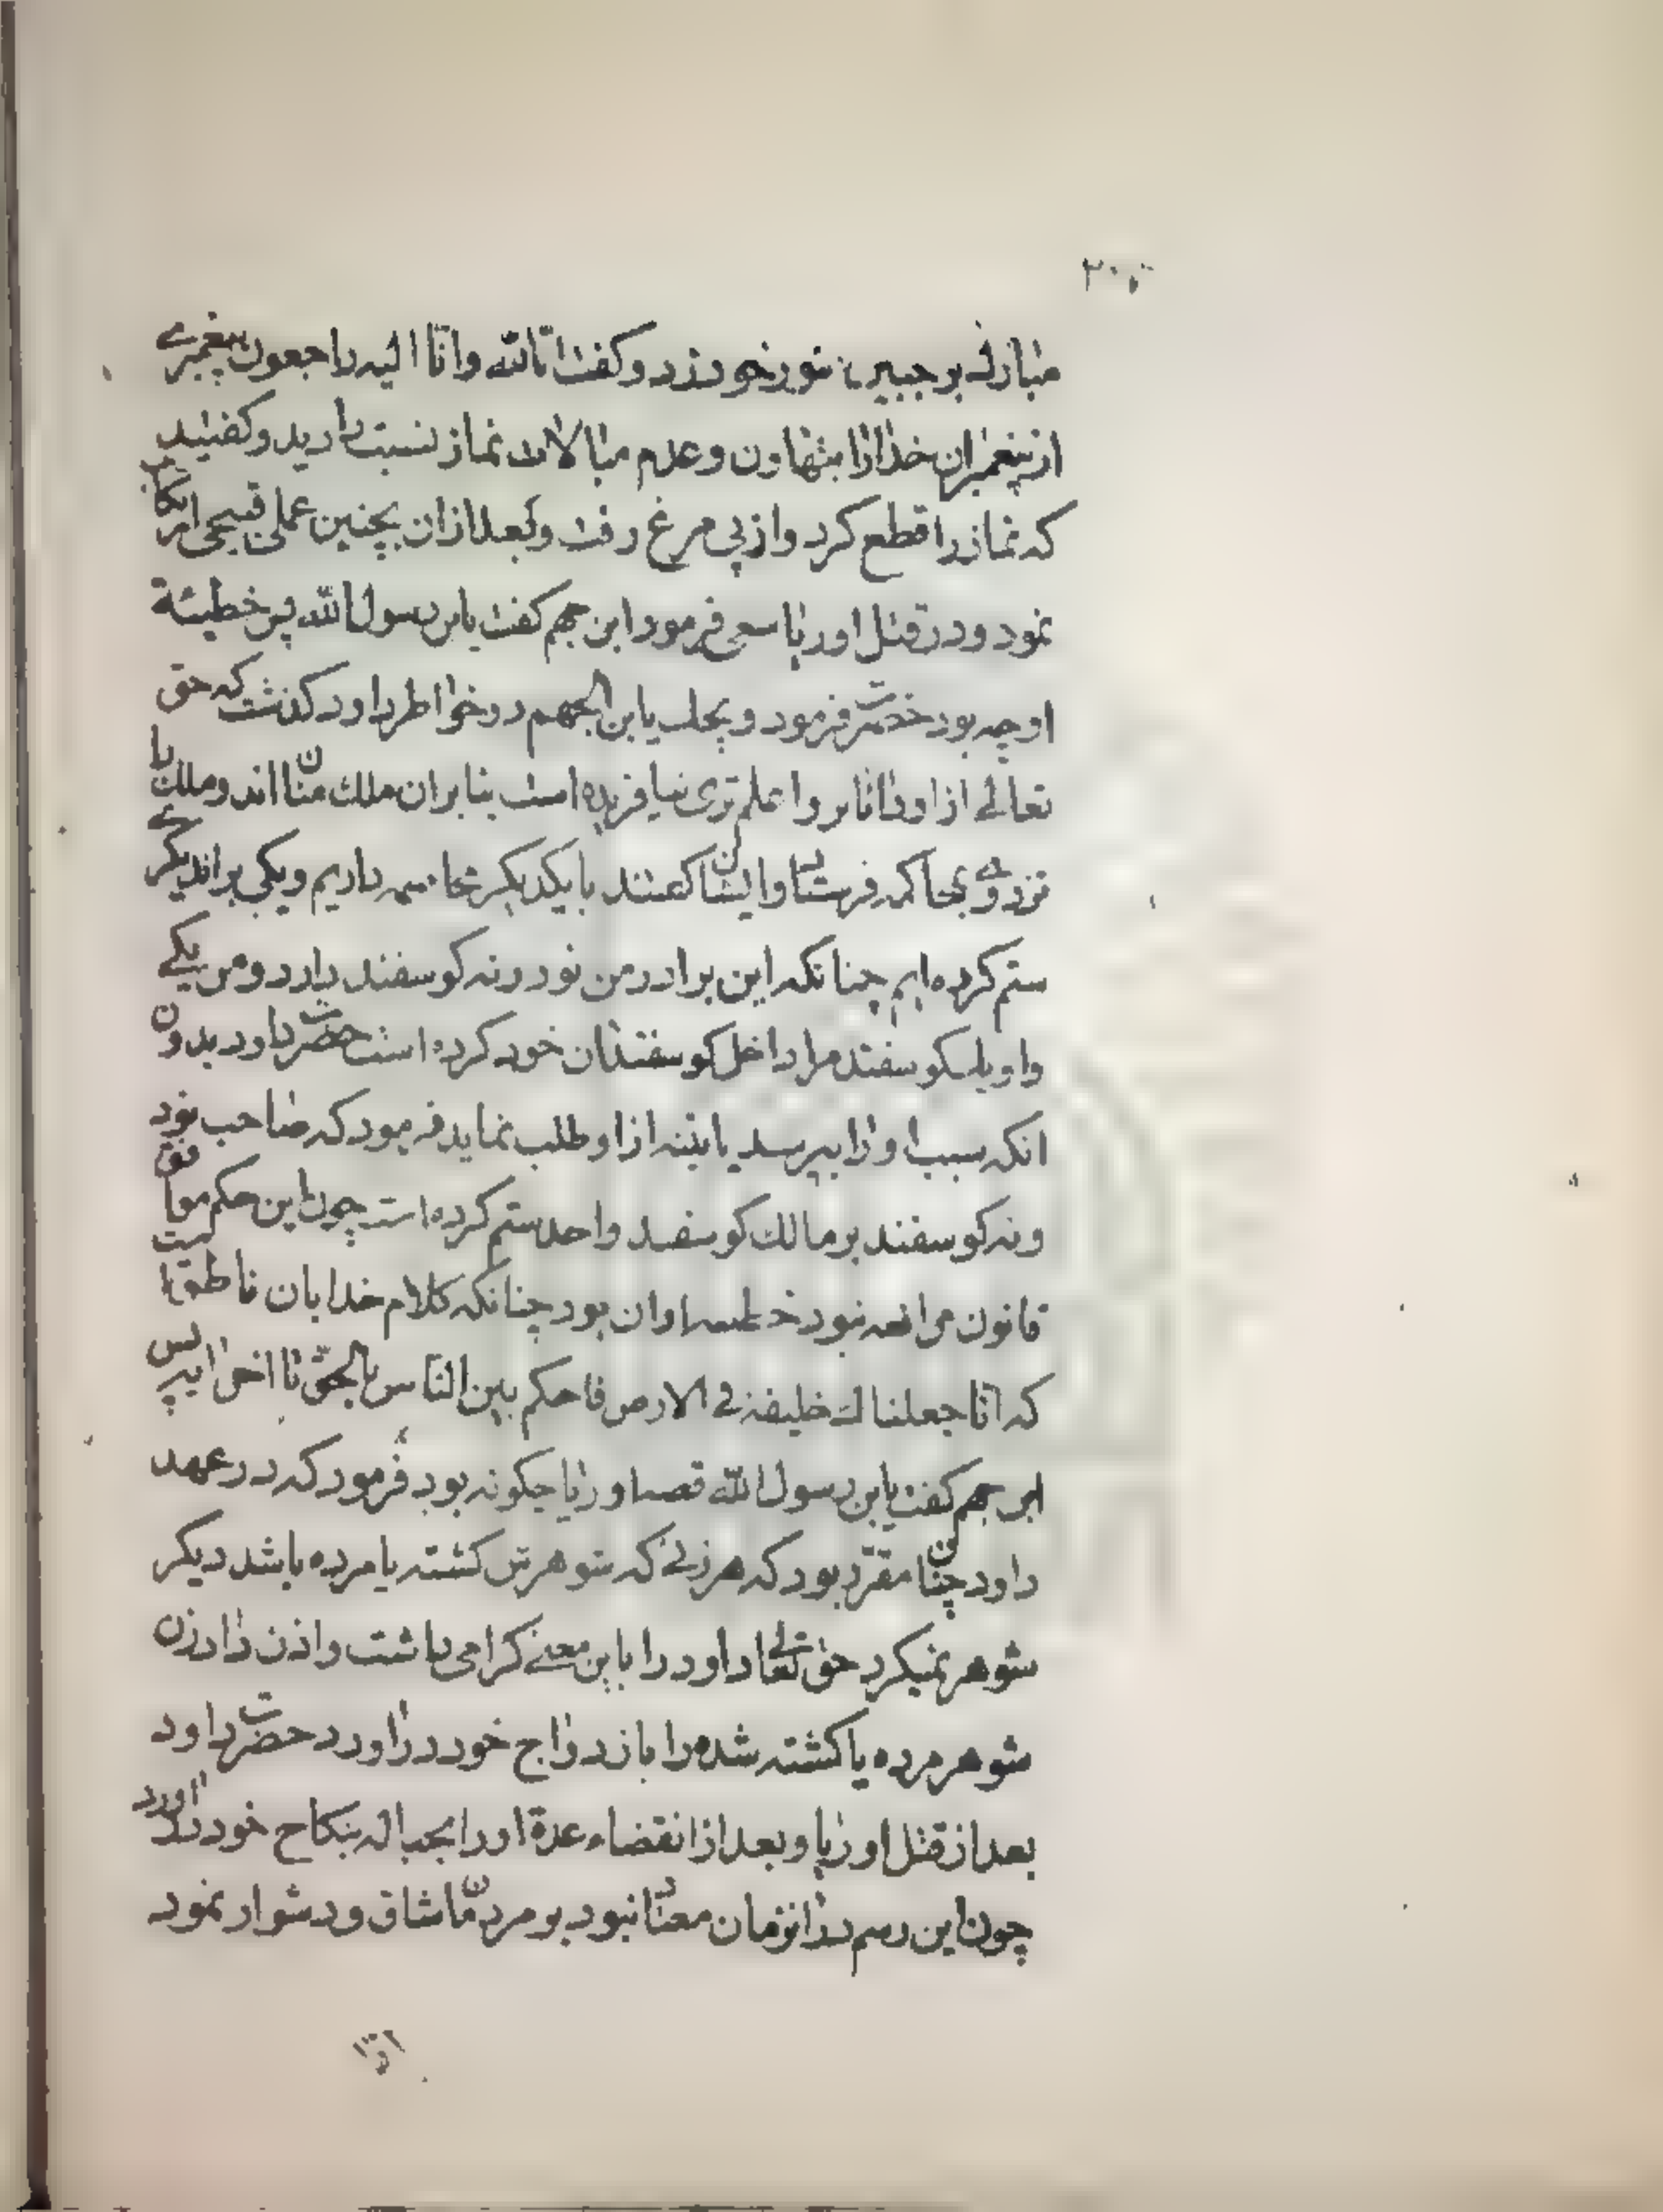 مبارک بر جبین خود زد و کفت انا لله وانا الیه راجعون پیغمبرے
از پیغمبران خدا را بتهاون و عدم مبالات نماز نسبت دادید و کفتید
که نماز را قطع کرد و از پی مرغ رفت و بعد از ان بچنین عملی قبیحی ارتکاب
نمود و در قتل اوریا سعی فرمود ابن جهم کفت یابن رسول الله پس خطیئة
او چه بود حضرت فرمود ویحک یابن الجهم در خواطر داود کذشت که حق
تعالے از او دانا تر و اعلم تری نیافریده است بنابران ملک منان اند و ملک را
نزد وے بمحاکمه فرستاد وایشان کفتند با یکدیکر مخاصمه داریم و یکی بر اندیکرے
ستم کرده ایم چنانکه این برادر من نود و نه کوسفند دارد و من یکے
و او یک کوسفند مرا داخل کوسفندان خود کرده است حضرت داود بدون
انکه سبب او را بپرسد یا بینه از او طلب نماید فرمود که صاحب نود
و نه کوسفند بر مالک کوسفند واحد ستم کرده است چون این حکم موافق
قانون مرافعه نبود خطیئه او ان بود چنانکه کلام خدا بان ناطق است
که انا جعلناک خلیفة فے الارض فاحکم بین الناس بالحق تا اخر ایه پس
ابن جهم کفت یابن رسول الله قصه اوریا چکونه بود فرمود که در عهد
داود چنان مقرر بود که هر زنے که شوهرش کشته یا مرده باشد دیکر
شوهر نمیکرد حق تعالی داود را باین معنے کرامی داشت و اذن داد زن
شوهر مرده یا کشته شده را بازدواج خود در اورد حضرت داود
بعد از قتل اوریا و بعد از انقضاء عدة او را بحباله نکاح خود در اورد
چون این رسم در انزمان معتاد نبود بر مردمان شاق و دشوار نمود